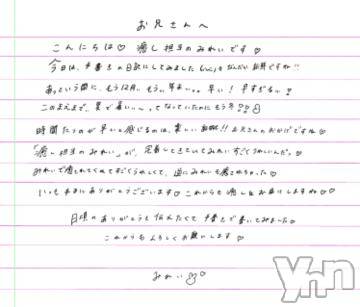 お兄さんへ
こんにちは♡ 癒し担当のみれいです♡
今日は、手書きの日記にしてみました いいなんだか新鮮ですね!!
あっという間に、もう12月。もう、年末…。早い!早すぎる…!
このまえまで、夏で暑い〜ってなっていたのにもう冬??
時間たつのが早いと感じるのは、楽しい お兄さんのおかげですね♡
「癒し担当のみれい」が、定着してきていてみれいすごくうれしいんだっ
みれいで癒されてくれてすごくうれしくて、逆にみれいも癒されちゃった♡
いつも本当にありがとうございます♡これからも癒しをお届けしますね♡
日頃のありがとうも伝えたくて手書きで書いてみました♡
これからもよろしくお願いします♡
みれい
Yh2n
ワイエイチツーエヌ